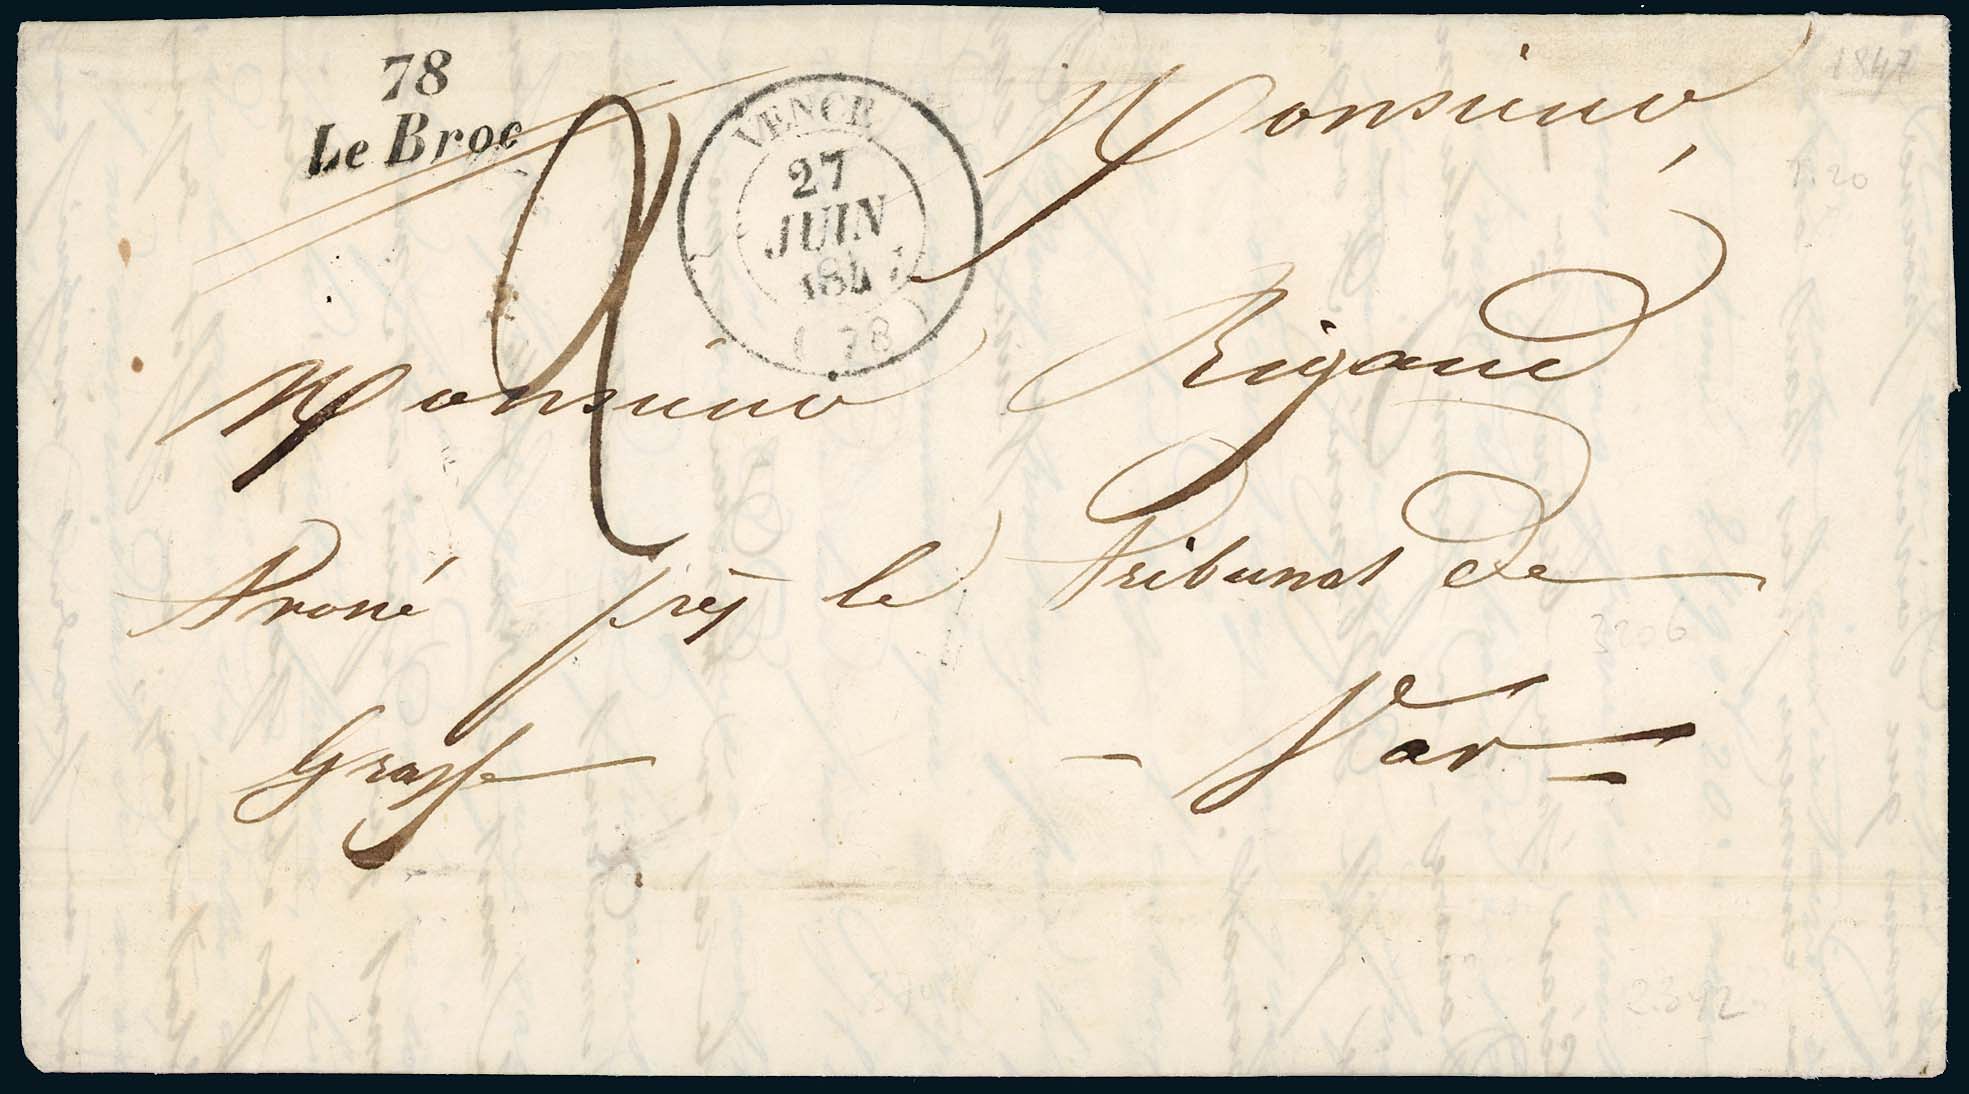 78
Le Broc
VENCE
27
JUIN
1847
(78)
2
1847
Monsieur,
Monsieur Rigaud
Avoué près le tribunal de
Grasse - Var
3206
2342